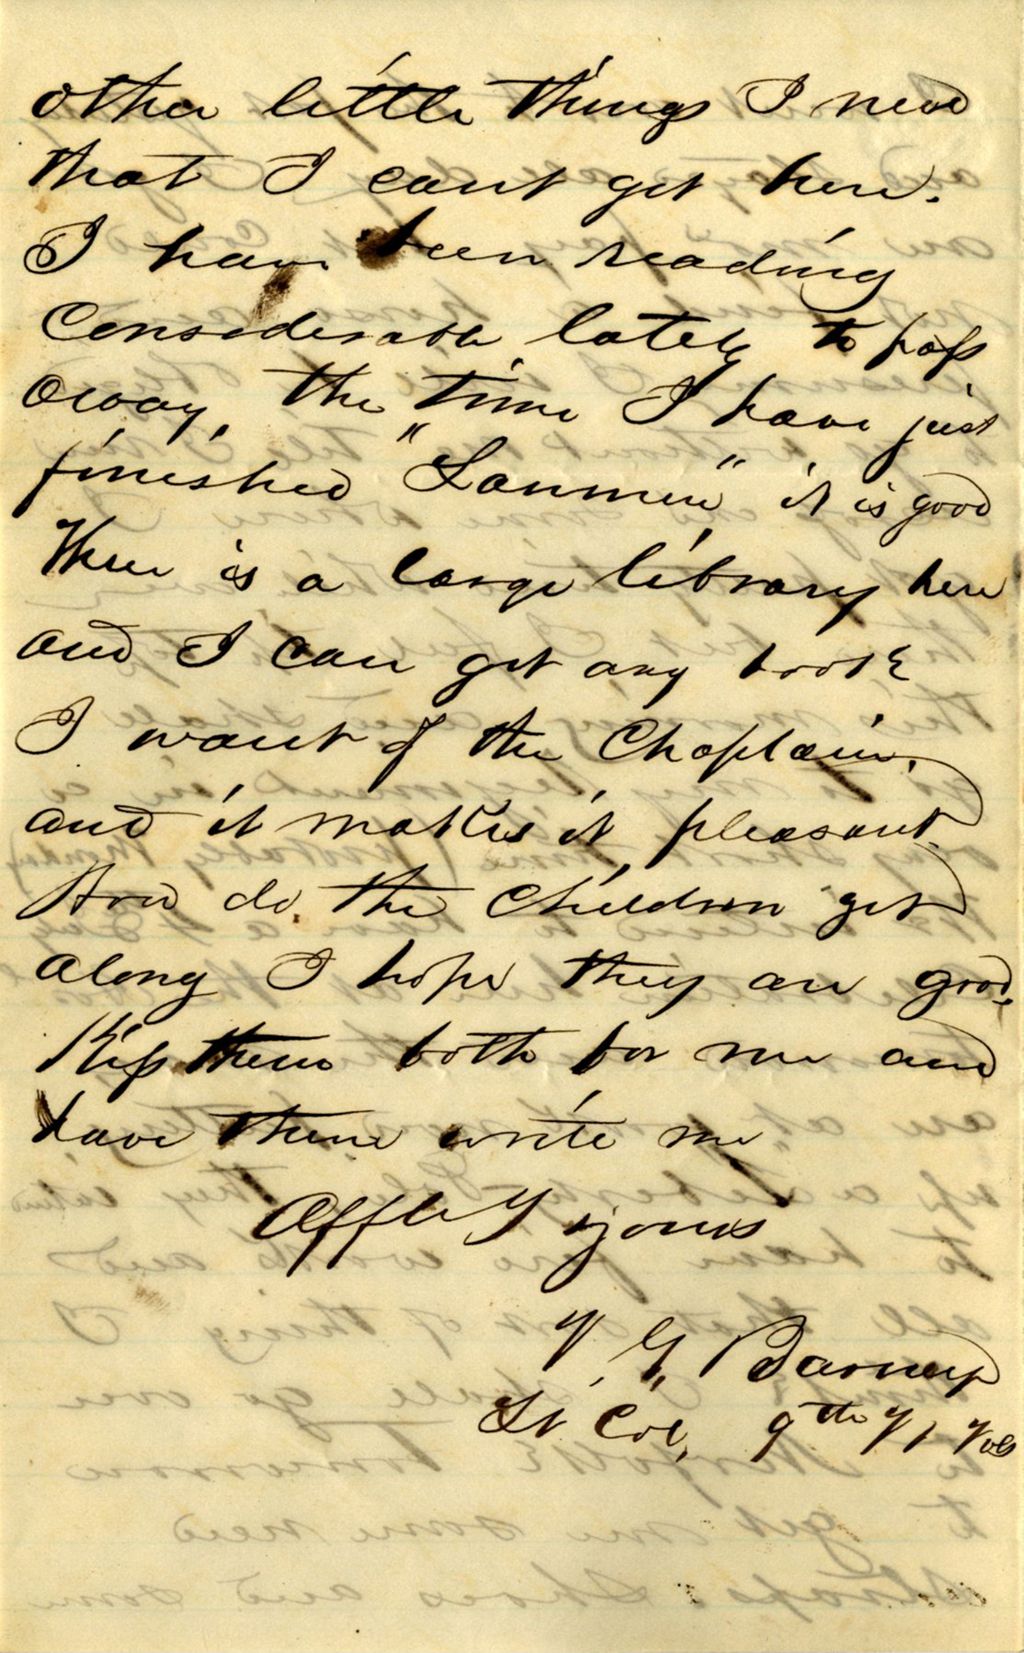 other little things I need
that I cant get here.
I have been reading
Considerable lately to pass
away, the time I have just
finished "Lanmere" it is good
There is a large library here
and I can get any book
I want of the Chaplain.
and it makes it pleasant.
How do the Children get
along I hope they are good.
Kiss them both for me and
have them write me
Affly yours
V. G. Barney
Lt Col, 9th Vt Vols